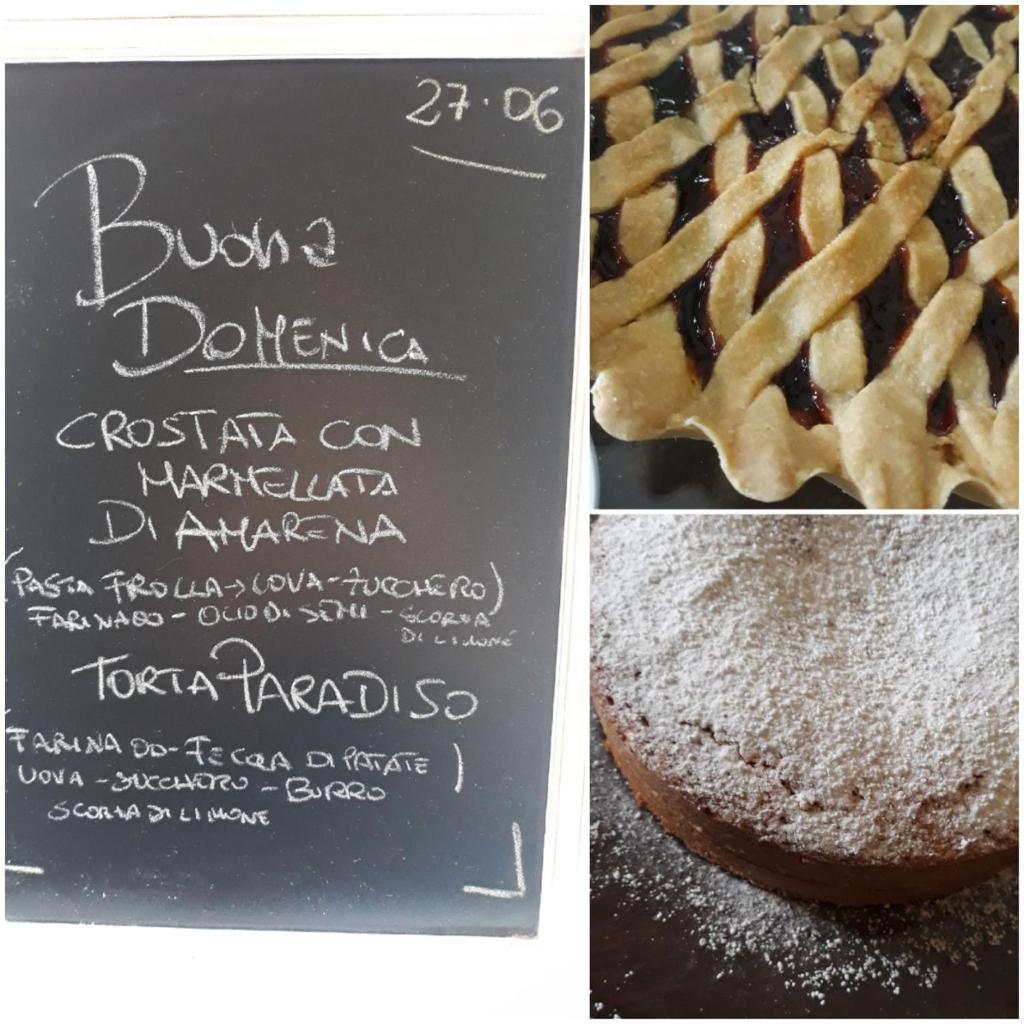 27.06
Buona
DOMENICA
CROSTATA CON
MARMELLATA
DI AMARENA
(PASTA FROLLA→UOVA-ZUCCHERO)
FARINA00-OLIO DI SEMI-SCORZA
DI LIMONE
TORTA PARADISO
FARINA 00-FECOLA DI PATATE)
UOVA-ZUCCHERO-BURRO
SCORZA DI LIMONE